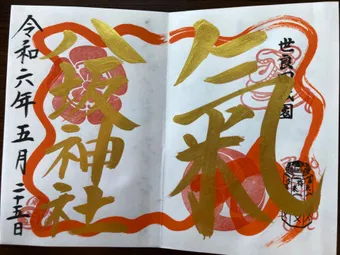 世良田祇園
氣
八坂神社
令和六年五月二十五日